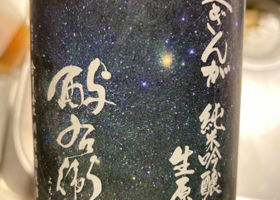 ぎんが 純米吟醸
生原
右衛